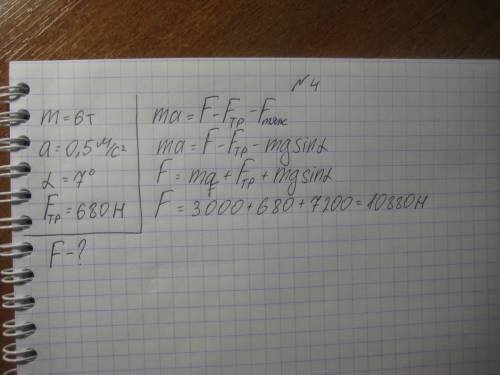 №4
m = 6т
a = 0,5 м/с²
α = 7°
Fтр = 680 Н
F - ?
ma = F - Fтр - Fтяж
ma = F - Fтр - mg sinα
F = ma + Fтр + mg sinα
F = 3000 + 680 + 7200 = 10880 Н